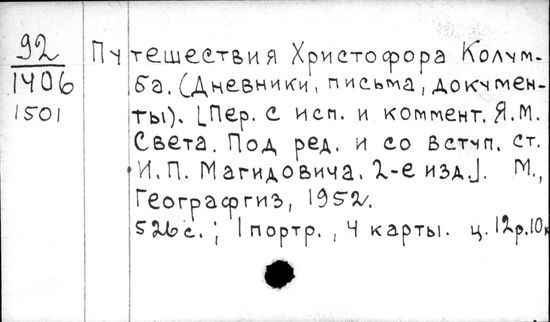 92
1406
1501
Путешествия Христофора Колум-
ба. (Дневники, письма, докумен-
ты). [Пер. с исп. и коммент. Я.М.
Света. Под ред. и со вступ. ст.
И.П. Магидовича. 2-е изд.]. М.,
Географгиз, 1952.
526с.; 1 портр., 4 карты. ц. 12р.10к